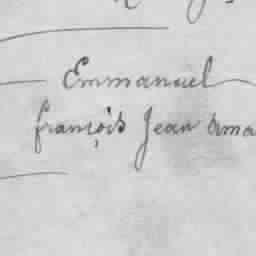 Emmanuel
françois Jean Ama